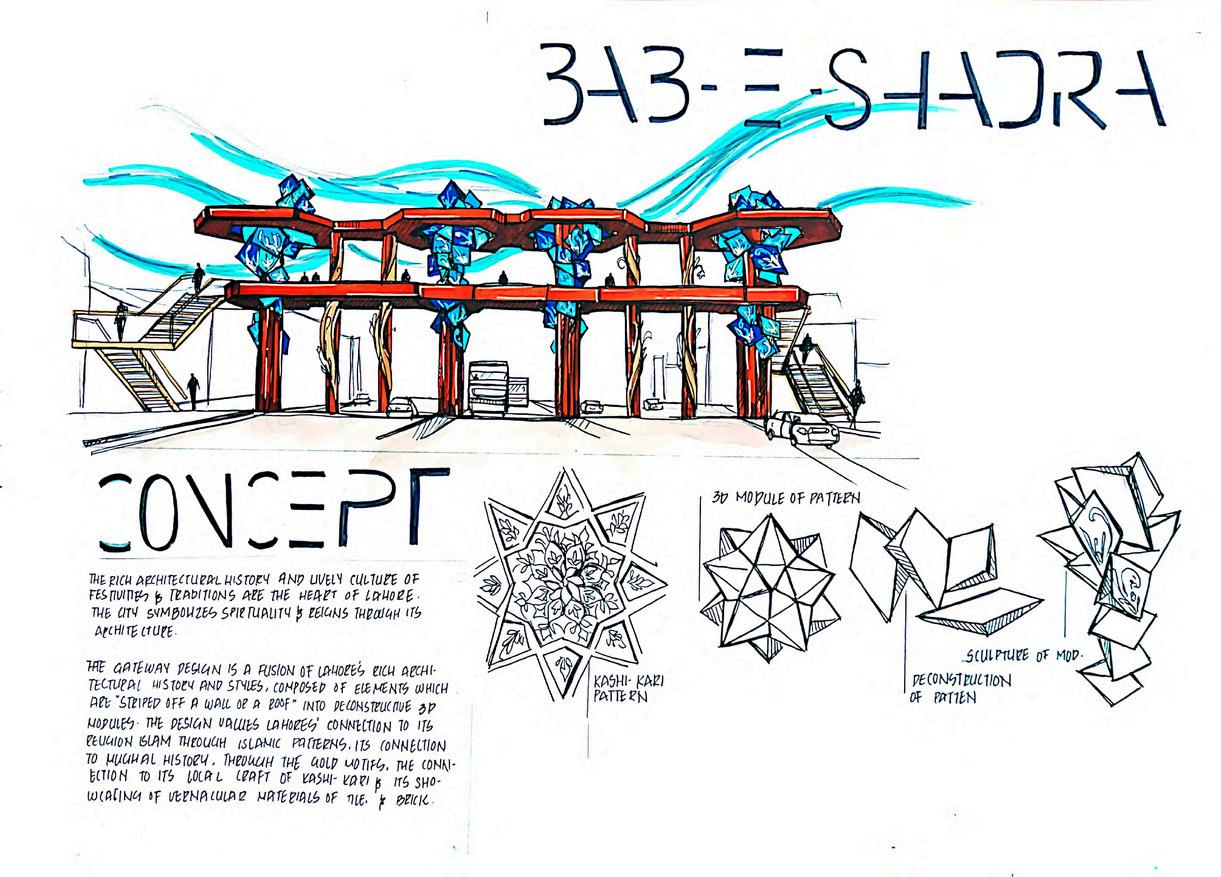 BAB-E-SHADRA
CONCEPT
THE RICH ARCHITECTURAL HISTORY AND LIVELY CULTURE OF
FESTIVITIES & TRADITIONS ARE THE HEART OF LAHORE.
THE CITY SYMBOLIZES SPIRITUALITY & REIGNS THROUGH ITS
ARCHITECTURE.
THE GATEWAY DESIGN IS A FUSION OF LAHORE'S RICH ARCHI-
TECTURAL HISTORY AND STYLES, COMPOSED OF ELEMENTS WHICH
ARE "STRIPED OFF A WALL OR A ROOF" INTO DECONSTRUCTIVE 3D
MODULES. THE DESIGN VALUES LAHORES' CONNECTION TO ITS
RELIGION ISLAM THROUGH ISLAMIC PATTERNS, ITS CONNECTION
TO MUGHAL HISTORY, THROUGH THE GOLD MOTIFS, THE CONN-
ECTION TO ITS LOCAL CRAFT OF KASHI-KARI & ITS SHO-
WCASING OF VERNACULAR MATERIALS OF TILE, & BRICK.
KASHI-KARI
PATTERN
3D MODULE OF PATTERN
DECONSTRUCTION
OF PATTEN
SCULPTURE OF MOD.